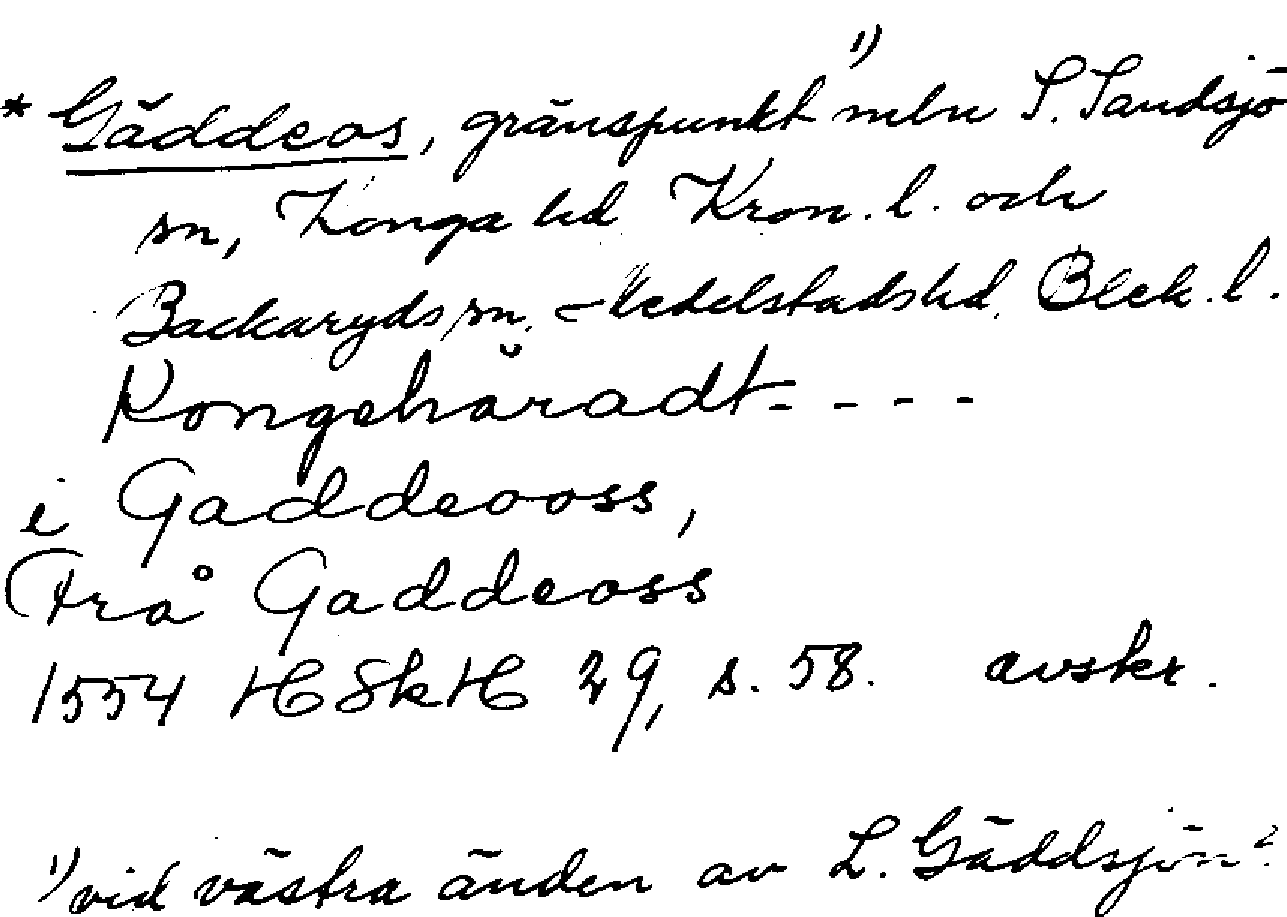 * Gäddeos, gränspunkt ¹⁾ mln S. Sandsjö
sn, Konga hd Kron. l. och
Backaryds sn, Medelstads hd, Blek. l.
Kongehäradt - - - -
i Gaddeooss,
Frå Gaddeoss
1554 HSkH 29, s. 58. avskr.
¹⁾ vid västra änden av L. Gäddsjön?